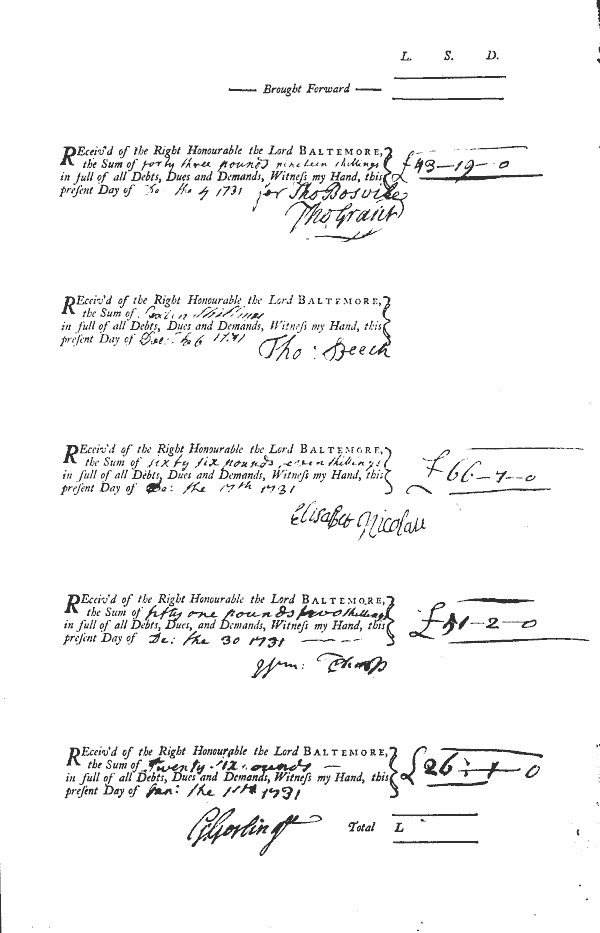 L. S. D.
Brought Forward
REceiv'd of the Right Honourable the Lord BALTEMORE,
the Sum of forty three pounds nineteen shillings
in full of all Debts, Dues and Demands, Witneſs my Hand, this
preſent Day of the 1731
£43-19-0
for Tho Bosvile
Tho Grant
REceiv'd of the Right Honourable the Lord BALTEMORE,
the Sum of
in full of all Debts, Dues and Demands, Witneſs my Hand, this
preſent Day of 1731
Tho: Beech
REceiv'd of the Right Honourable the Lord BALTEMORE,
the Sum of sixty six pounds seven shillings
in full of all Debts, Dues and Demands, Witneſs my Hand, this
preſent Day of De: the 17th 1731
£66-7-0
REceiv'd of the Right Honourable the Lord BALTEMORE,
the Sum of fifty one pounds two shillings
in full of all Debts, Dues, and Demands, Witneſs my Hand, this
preſent Day of De: the 30 1731
£51-2-0
REceiv'd of the Right Honourable the Lord BALTEMORE,
the Sum of twenty six pounds
in full of all Debts, Dues and Demands, Witneſs my Hand, this
preſent Day of Jan: the 1731
£26 0
Total L